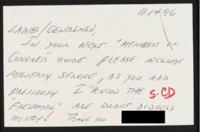 11.14.96
LADIES/GENTLEMEN,
IN YOUR NEXT "MEMBERS OF
CONGRESS" GUIDE PLEASE INCLUDE
MILITARY SERVICE, AS YOU HAD
PREVIOUSLY. I KNOW THE S.CD
"FRESHMAN" ARE
HISTORY! THANK YOU